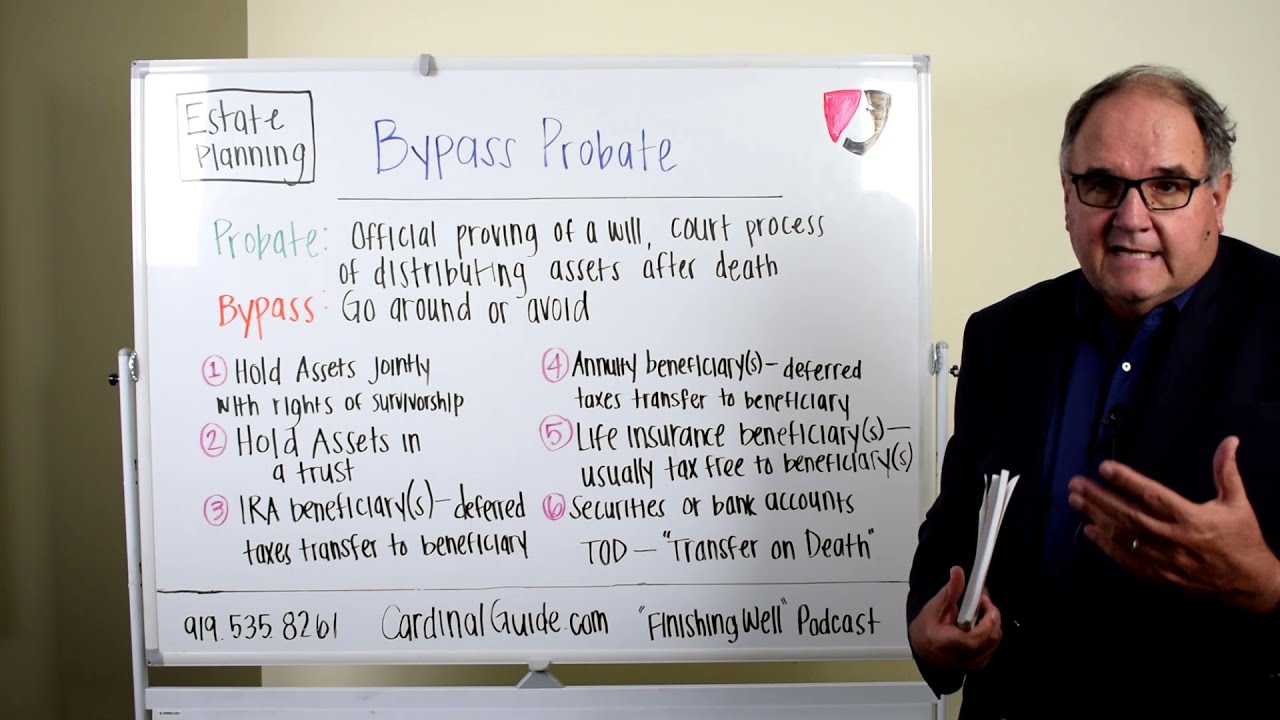 Estate
Planning
Bypass Probate
Probate: Official proving of a will, court process
of distributing assets after death
Bypass: Go around or avoid
1 Hold Assets Jointly
with rights of survivorship
2 Hold Assets in
a trust
3 IRA beneficiary(s) – deferred
taxes transfer to beneficiary
4 Annuity beneficiary(s) – deferred
taxes transfer to beneficiary
5 Life insurance beneficiary(s) –
usually tax free to beneficiary(s)
6 Securities or bank accounts
TOD – "Transfer on Death"
919.535.8261 CardinalGuide.com "Finishing Well" Podcast